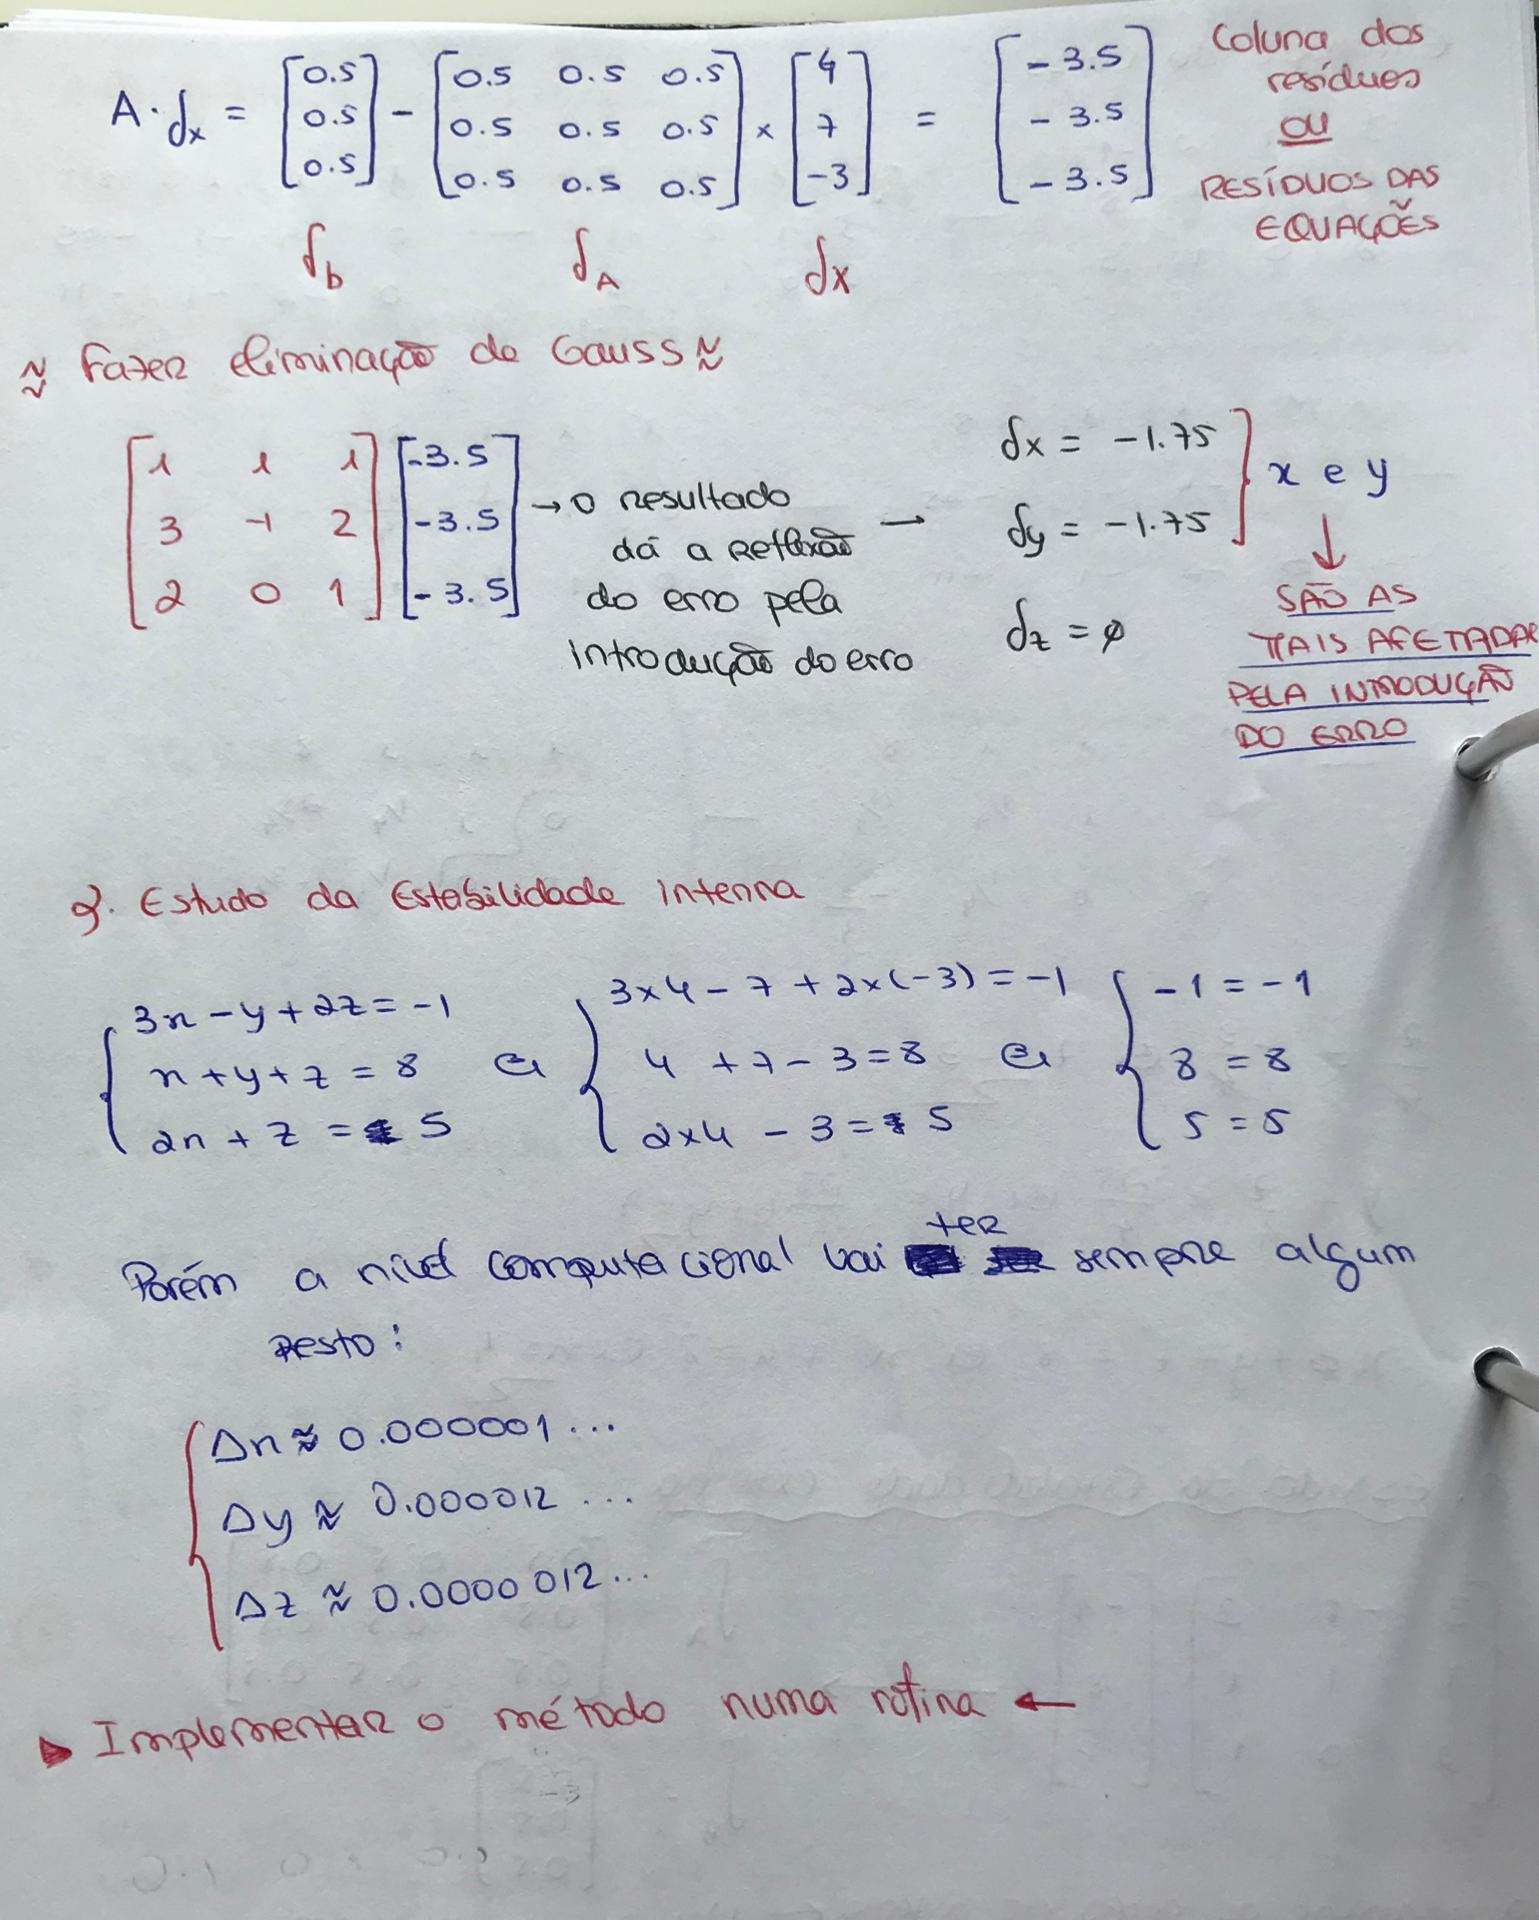 A·δx = [0.5 0.5 0.5] - [0.5 0.5 0.5 0.5 0.5 0.5 0.5 0.5 0.5] × [4 7 -3] = [-3.5 -3.5 -3.5]
Coluna dos
resíduos
OU
RESÍDUOS DAS
EQUAÇÕES
δb δA δx
≈ Fazer eliminação de Gauss ≈
[1 1 1] [-3.5]
[3 -1 2] [-3.5]
[2 0 1] [-3.5]
→ o resultado
dá a reflexão
do erro pela
introdução do erro
→ δx = -1.75
δy = -1.75
δz = ∅
x e y
↓
SÃO AS
MAIS AFETADAS
PELA INTRODUÇÃO
DO ERRO
2. Estudo da Estabilidade interna
3x - y + 2z = -1
x + y + z = 8
2x + z = 5
⇔
3×4 - 7 + 2×(-3) = -1
4 + 7 - 3 = 8
2×4 - 3 = 5
⇔
-1 = -1
8 = 8
5 = 5
Porém a nível computacional vai ter sempre algum
resto:
Δx ≈ 0.000001...
Δy ≈ 0.000012...
Δz ≈ 0.0000012...
▶ Implementar o método numa rotina ←